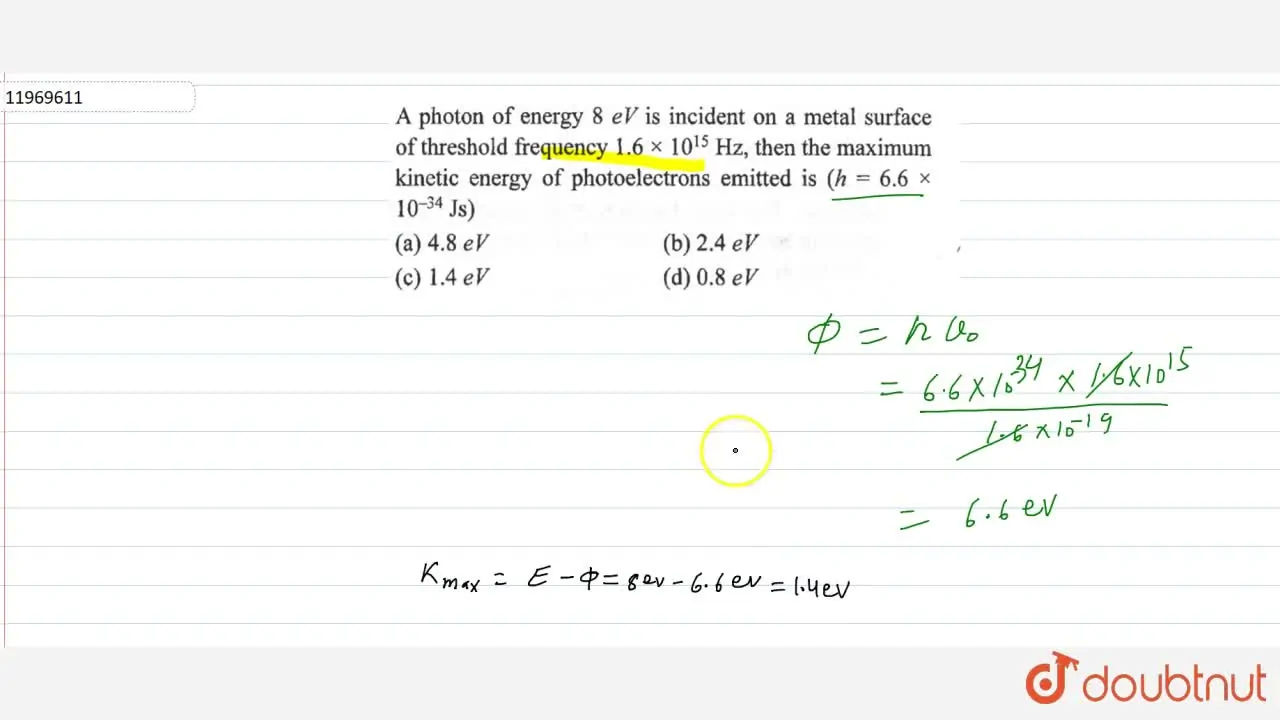 11969611
A photon of energy 8 eV is incident on a metal surface
of threshold frequency 1.6 × 10¹⁵ Hz, then the maximum
kinetic energy of photoelectrons emitted is (h = 6.6 ×
10⁻³⁴ Js)
(a) 4.8 eV (b) 2.4 eV
(c) 1.4 eV (d) 0.8 eV
ϕ = h υ₀
= 6.6 × 10³⁴ × 1.6 × 10¹⁵
1.6 × 10⁻¹⁹
= 6.6 ev
Kmax = E − ϕ = 8ev − 6.6 ev = 1.4 ev
doubtnut